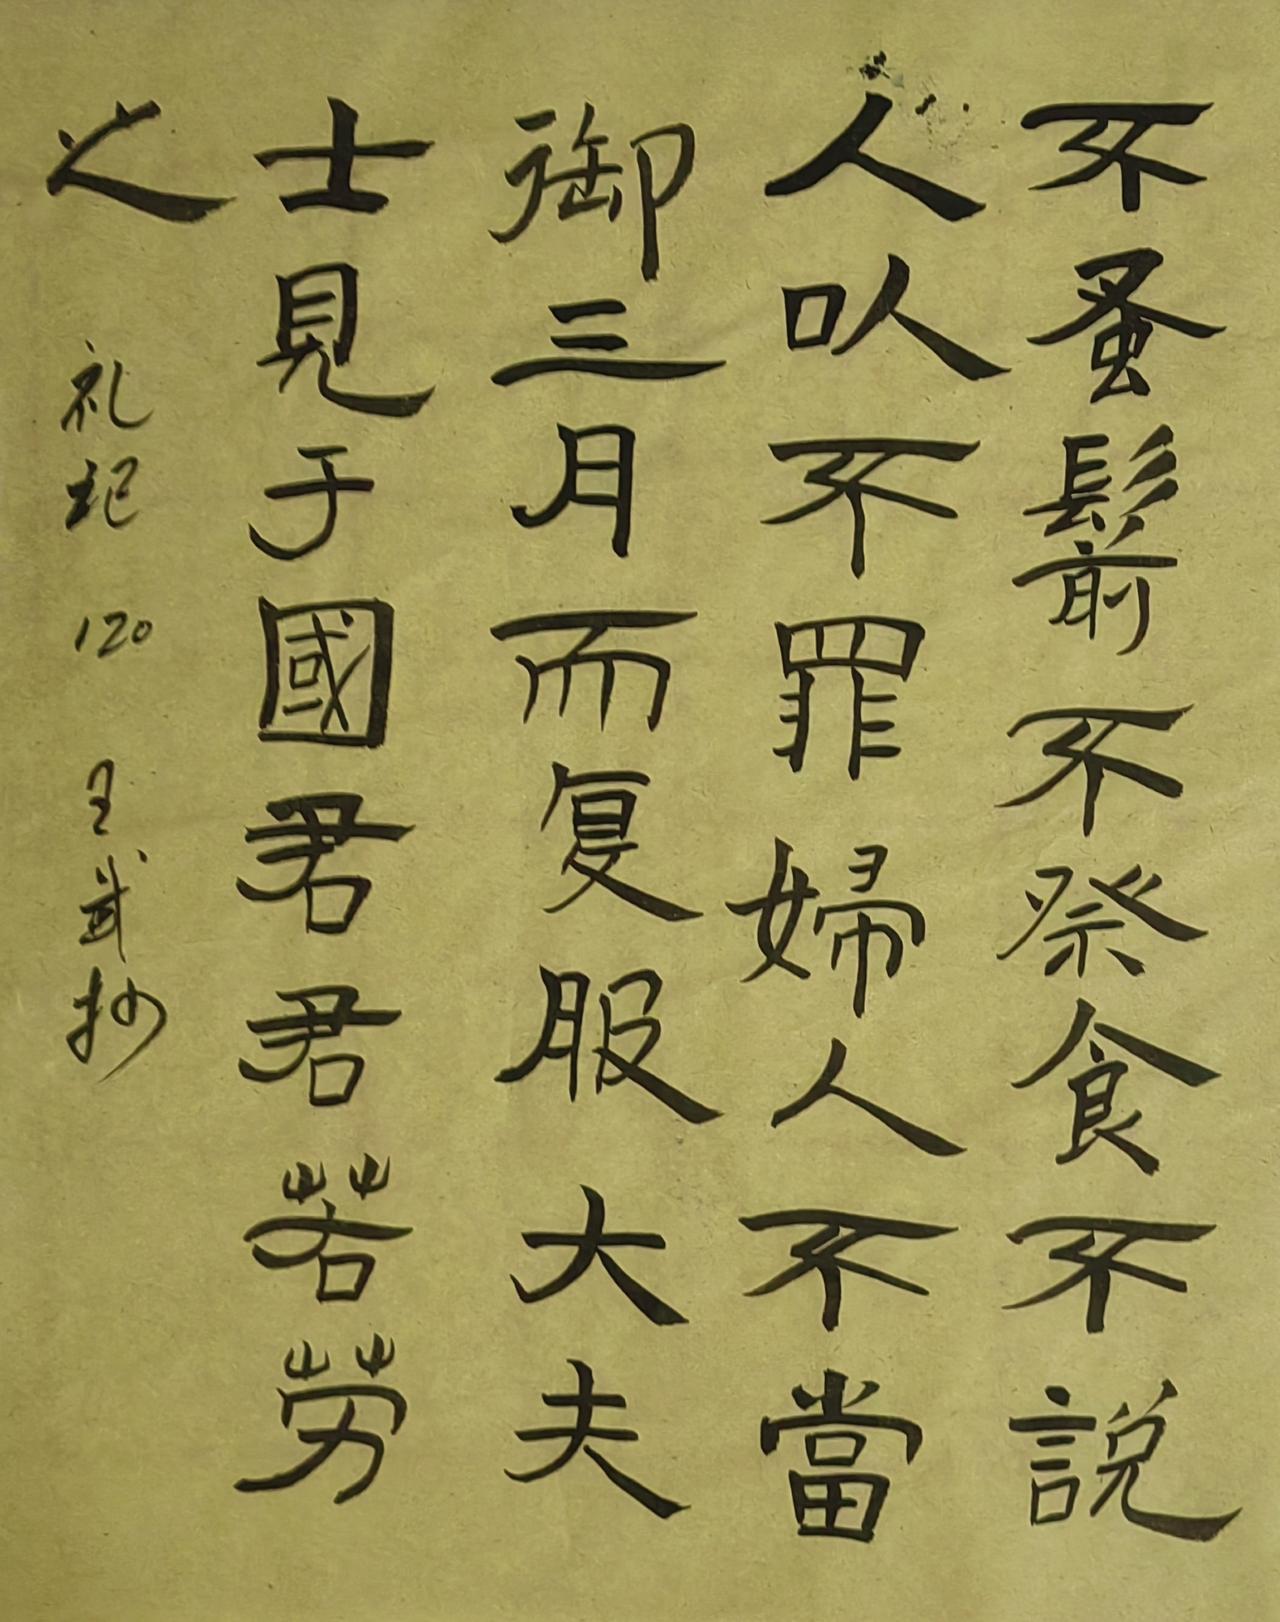 不蚤鬋不祭食不說
人以不罪婦人不當
御三月而复服大夫
士見于國君君若劳
之
礼记 120 王武抄